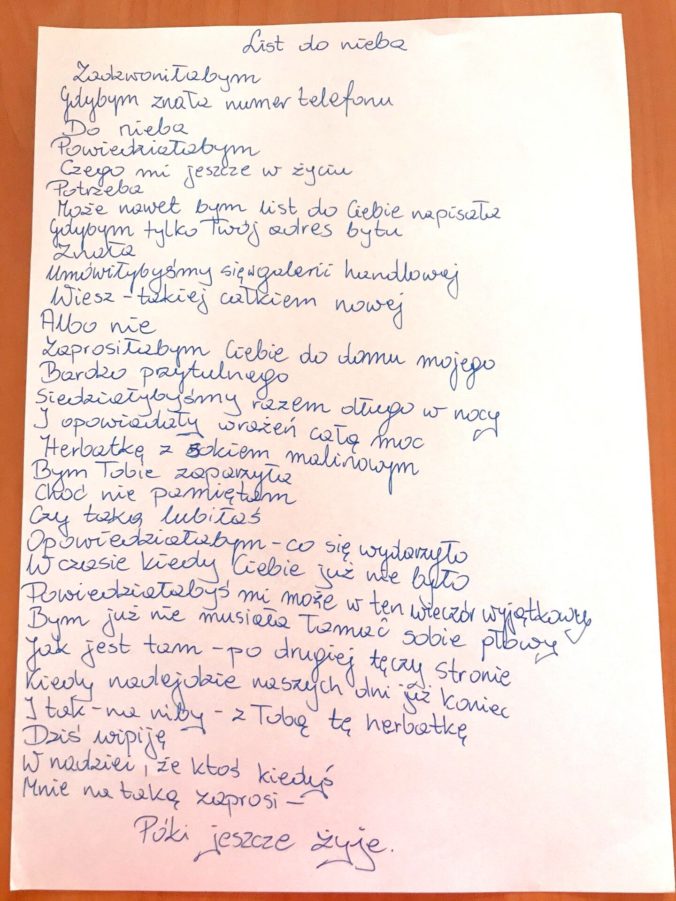 List do nieba
Zadzwoniłabym
Gdybym znała numer telefonu
Do nieba
Powiedziałabym
Czego mi jeszcze w życiu
Potrzeba
Może nawet bym list do Ciebie napisała
Gdybym tylko Twój adres bytu
Znała
Umówiłybyśmy się w galerii handlowej
Wiesz - takiej całkiem nowej
Albo nie
Zaprosiłabym Ciebie do domu mojego
Bardzo przytulnego
Siedziałybyśmy razem długo w nocy
I opowiadały wrażeń całą moc
Herbatkę z sokiem malinowym
Bym Tobie zaparzyła
Choć nie pamiętam
Czy taką lubiłaś
Opowiedziałabym - co się wydarzyło
W czasie kiedy Ciebie już nie było
Powiedziałabyś mi może w ten wieczór wyjątkowy
Bym już nie musiała łamać sobie głowy
Jak jest tam - po drugiej tęczy stronie
Kiedy nadejdzie naszych dni już koniec
I tak - na niby - z Tobą tę herbatkę
Dziś wipiję
W nadziei, że ktoś kiedyś
Mnie na taką zaprosi -
Póki jeszcze żyje.